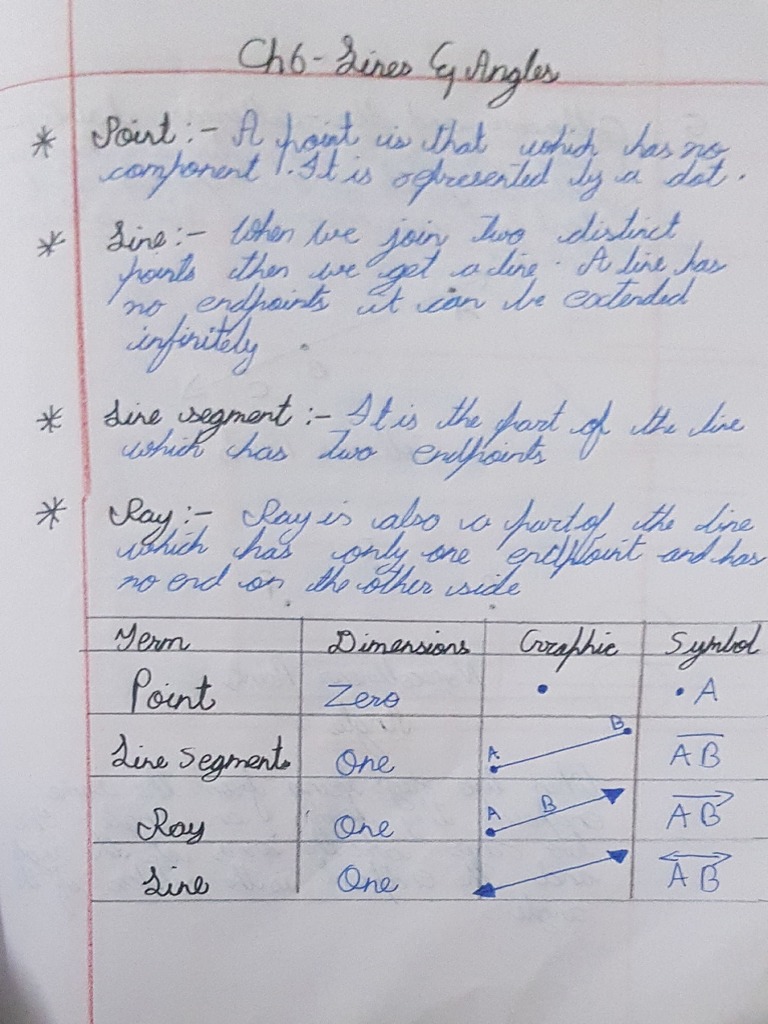 Ch6 - Lines & Angles
* Point :- A point is that which has no
component. It is represented by a dot.
* Line :- When we join two distinct
points then we get a line. A line has
no endpoints it can be extended
infinitely
* Line segment :- It is the part of the line
which has two endpoints
* Ray :- Ray is also a part of the line
which has only one endpoint and has
no end on the other side
Term Dimensions Graphic Symbol
Point Zero • A
Line Segment One A B AB
Ray One A B AB
Line One AB